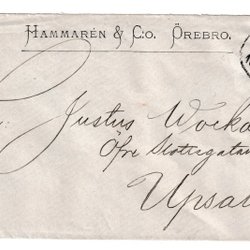 HAMMARÉN & C:o. ÖREBRO.
Justus
Öfre Slottsgatan
Upsa